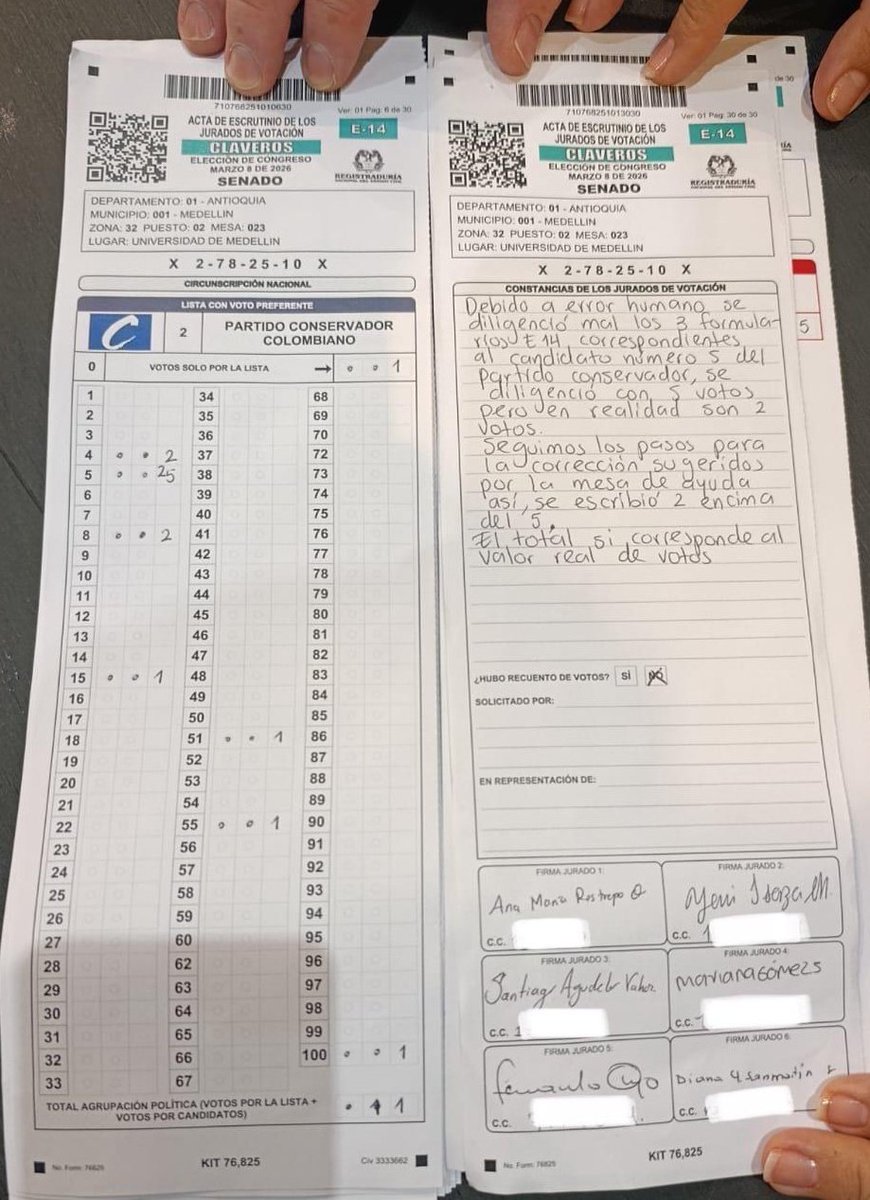 710766251010630
Ver: 01 Pag: 6 de 30
ACTA DE ESCRUTINIO DE LOS
JURADOS DE VOTACIÓN
E-14
CLAVEROS
ELECCIÓN DE CONGRESO
MARZO 8 DE 2026
SENADO
REGISTRADURÍA
DEPARTAMENTO: 01 - ANTIOQUIA
MUNICIPIO: 001 - MEDELLIN
ZONA: 32 PUESTO: 02 MESA: 023
LUGAR: UNIVERSIDAD DE MEDELLIN
X 2-78-25-10 X
CIRCUNSCRIPCIÓN NACIONAL
LISTA CON VOTO PREFERENTE
C 2 PARTIDO CONSERVADOR
COLOMBIANO
0 VOTOS SOLO POR LA LISTA → • • 1
1 34 68
2 35 69
3 36 70
4 • • 2 37 72
5 • • 25 38 73
6 39 74
7 40 75
8 • • 2 41 76
9 42 77
10 43 78
11 44 79
12 45 80
13 46 81
14 47 82
15 • • 1 48 83
16 49 84
17 50 85
18 51 • • 1 86
19 52 87
20 53 88
21 54 89
22 55 • • 1 90
23 56 91
24 57 92
25 58 93
26 59 94
27 60 95
28 62 96
29 63 97
30 64 98
31 65 99
32 66 100 • • 1
33 67
TOTAL AGRUPACIÓN POLÍTICA (VOTOS POR LA LISTA +
VOTOS POR CANDIDATOS) • 1 1
No. Form: 76825
KIT 76,825
Civ 3333662
710768251013030
Ver: 01 Pag: 30 de 30
ACTA DE ESCRUTINIO DE LOS
JURADOS DE VOTACIÓN
E-14
CLAVEROS
ELECCIÓN DE CONGRESO
MARZO 8 DE 2026
SENADO
REGISTRADURÍA
DEPARTAMENTO: 01 - ANTIOQUIA
MUNICIPIO: 001 - MEDELLIN
ZONA: 32 PUESTO: 02 MESA: 023
LUGAR: UNIVERSIDAD DE MEDELLIN
X 2-78-25-10 X
CONSTANCIAS DE LOS JURADOS DE VOTACIÓN
Debido a error humano se
diligenció mal los 3 formula-
rios E14, correspondientes
al candidato número 5 del
partido conservador, se
diligenció con 5 votos
pero en realidad son 2
votos.
Seguimos los pasos para
la corrección sugeridos
por la mesa de ayuda
así, se escribió 2 encima
del 5.
El total si corresponde al
valor real de votos
¿HUBO RECUENTO DE VOTOS? SI NO
SOLICITADO POR:
EN REPRESENTACIÓN DE:
FIRMA JURADO 1: FIRMA JURADO 2:
Ana María Restrepo Q Yeni Isaza M.
C.C. C.C. 1
FIRMA JURADO 3: FIRMA JURADO 4:
Santiago Agudelo marianaGómezs
C.C. 1 C.C.
FIRMA JURADO 5: FIRMA JURADO 6:
Fernando Diana Y Sanmartin
C.C. C.C.
No. Form: 76825
KIT 76,825
de 30
5